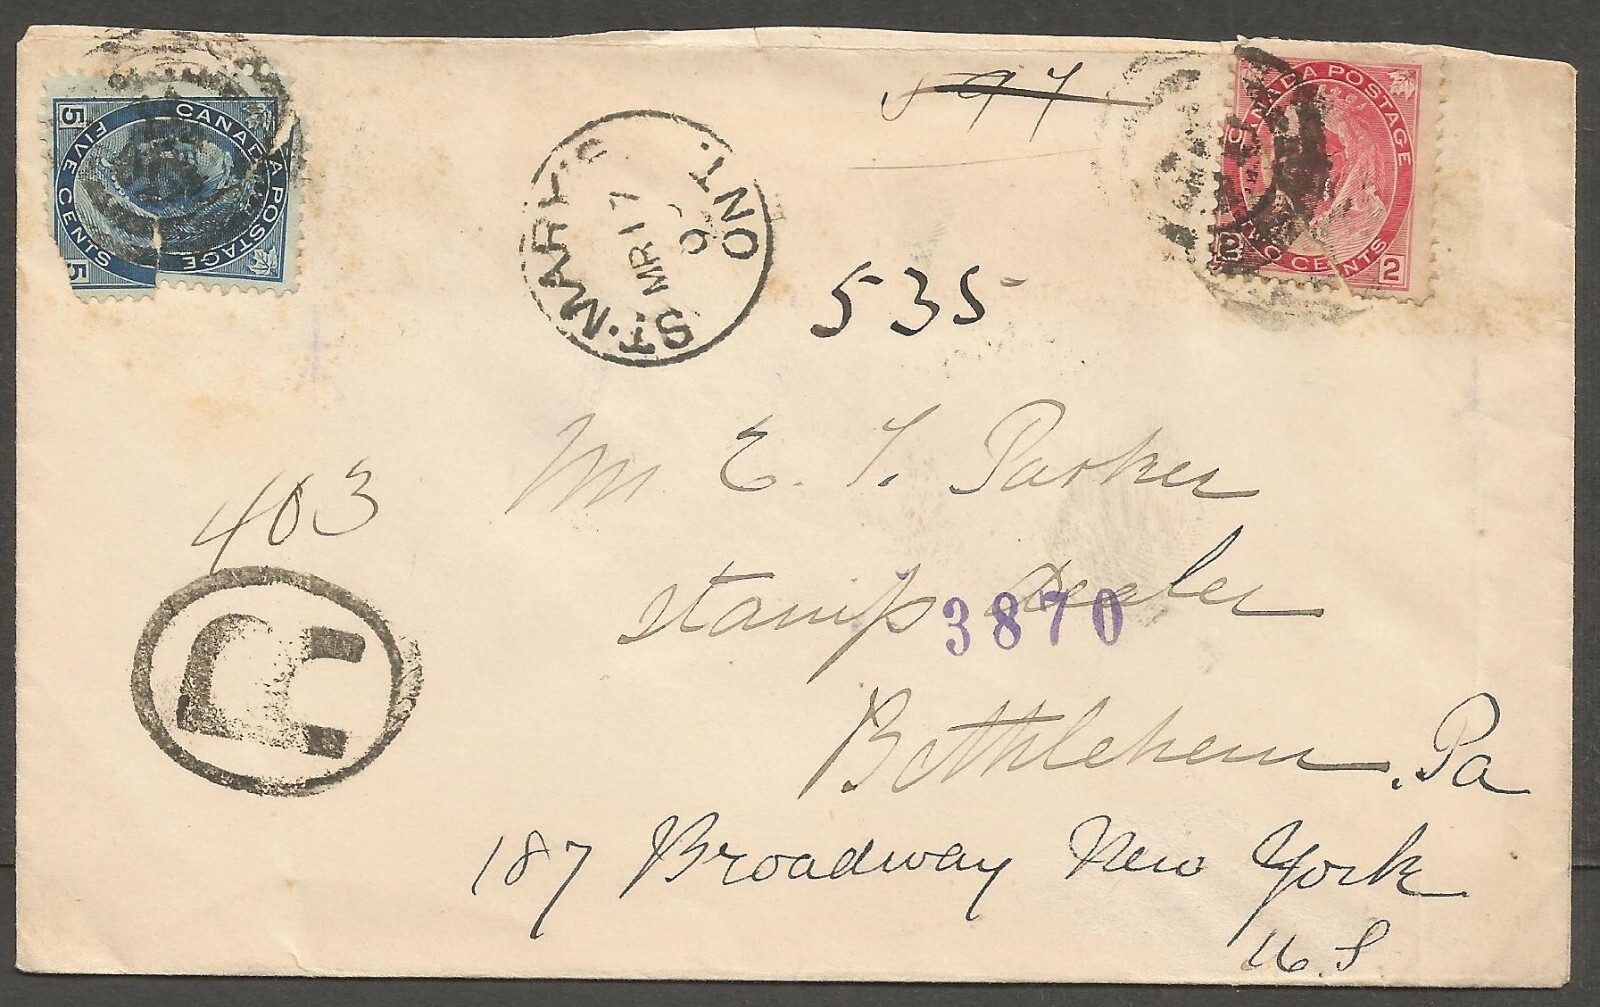 CANADA POSTAGE
5 FIVE CENTS 5
ST. MARY'S ONT.
MR 17
CANADA POSTAGE
2 TWO CENTS 2
535
403
R
Mr E. T. Parker
Stamp Dealer
3870
Bethlehem. Pa
187 Broadway New York
U.S